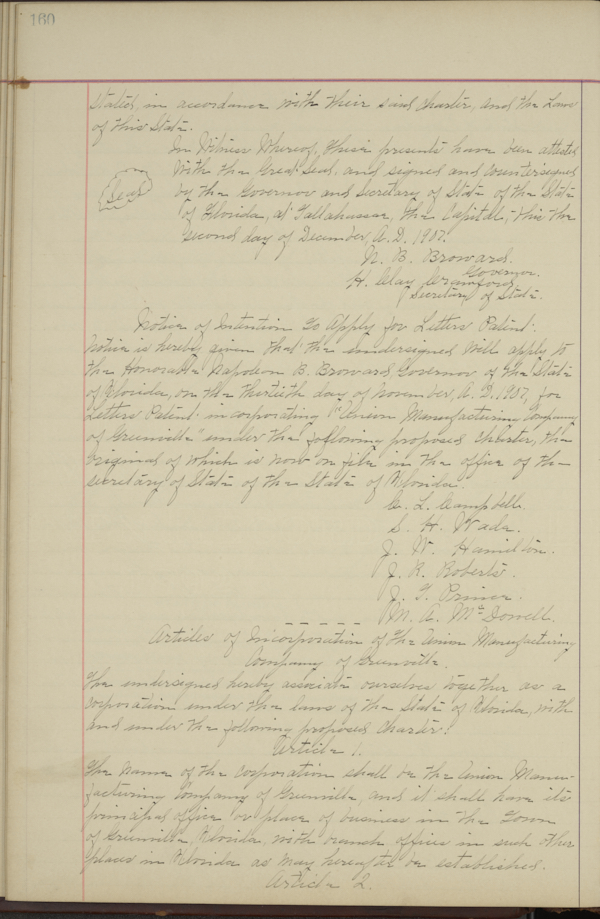 160
stated, in accordance with their said charter, and the Laws
of this State.
In Witness Whereof, these presents have been attested
with the Great Seal, and signed and countersigned
(Seal)
by the Governor and Secretary of State of the State
of Florida, at Tallahassee, the Capital, this the
second day of December, A.D. 1907.
N. B. Broward.
Governor.
H. Clay Crawford
Secretary of State.
Notice of Intention To Apply for Letters Patent.
Notice is hereby given that the undersigned will apply to
the Honorable Napoleon B. Broward Governor of the State
of Florida, on the thirtieth day of November, A.D. 1907, for
Letters Patent incorporating "Union Manufacturing Company
of Greenville" under the following proposed charter, the
original of which is now on file in the office of the
secretary of State of the State of Florida.
C. L. Campbell.
S. H. Wade.
J. W. Hamilton.
J. R. Roberts.
J. T. Prince.
M. A. McDowell.
Articles of Incorporation of the Union Manufacturing
Company of Greenville.
The undersigned hereby associate ourselves together as a
corporation under the laws of the State of Florida, with
and under the following proposed charter:
Article 1.
The name of the corporation shall be the Union Manu-
facturing Company of Greenville, and it shall have its
principal office or place of business in the Town
of Greenville Florida, with branch offices in such other
places in Florida as may hereafter be established.
Article 2.